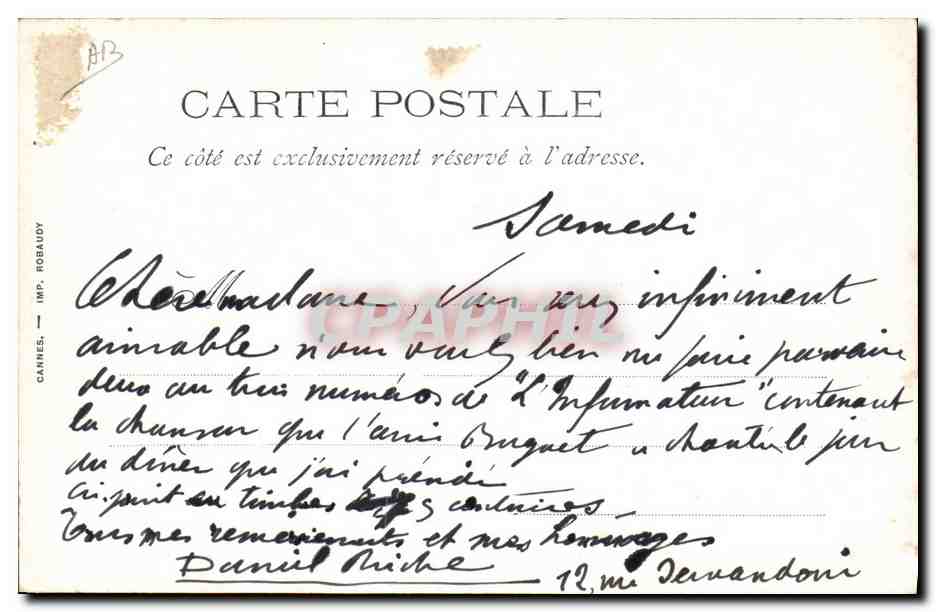 AB
CARTE POSTALE
Ce côté est exclusivement réservé à l'adresse.
CANNES. — IMP. ROBAUDY
Samedi
Chère Madame, Vous infiniment
aimable si vous bien me faire parvenir
deux ou trois numéros de "L'Informateur" contenant
la chanson que l'ami Buguet a chantée le jour
du dîner que j'ai présidé
Ci joint en timbres centimes
Tous mes remerciements et mes hommages
Daniel Riche
12, rue Servandoni
CPAPHIL